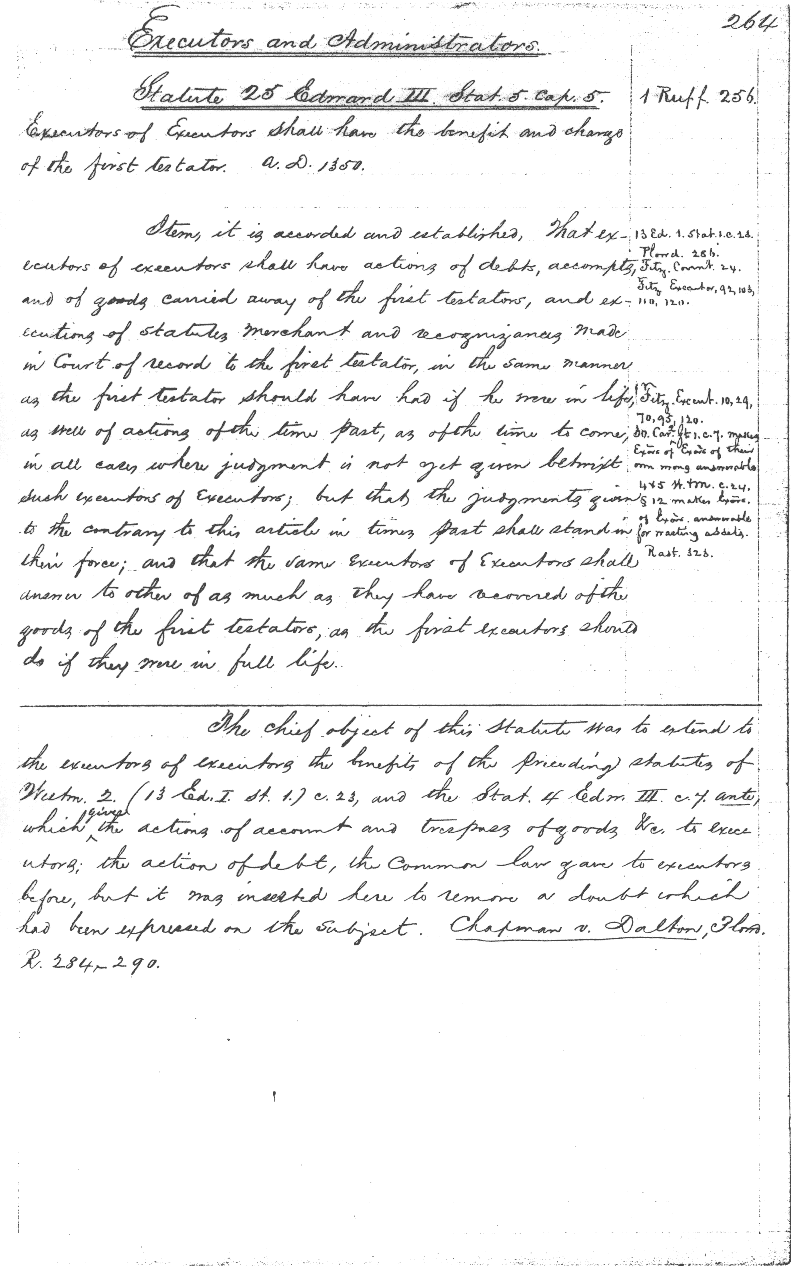 264
Executors and Administrators.
Statute 25 Edward III. Stat. 5. Cap. 5.
1 Ruff. 256.
Executors of Executors shall have the benefit and charge
of the first testator. A.D. 1350.
Item, it is accorded and established, That ex-
ecutors of executors shall have actions of debts, accompts,
and of goods carried away of the first testators, and ex-
ecutions of statutes merchant and recognizances made
in Court of record to the first testator, in the same manner
as the first testator should have had if he were in life,
as well of actions of the time past, as of the time to come,
in all cases where judgment is not yet given betwixt
such executors of Executors; but that the judgments given
to the contrary to this article in times past shall stand in
their force; and that the same Executors of Executors shall
answer to other of as much as they have recovered of the
goods of the first testators, as the first executors should
do if they were in full life.
13 Ed. 1. Stat. 1. c. 23.
Plowd. 286.
Fitz. Covnt. 24.
Fitz. Executor, 92, 103,
110, 120.
Fitz. Execut. 10, 29,
70, 95, 120.
30. Car. 2. St. 1. c. 7. makes
Exōrs of Exōrs of their
own wrong answerable
4 & 5 W. & M. c. 24.
§ 12 makes Exōrs.
of Exōrs. answerable
for wasting assets.
Rast. 323.
The chief object of this Statute was to extend to
the executors of executors the benefits of the preceding statutes of
Westm. 2. (13 Ed. I. st. 1.) c. 23, and the Stat. 4 Edw. III. c. 7. ante,
which gives the actions of account and trespass of goods &c. to exec-
utors; the action of debt, the Common law gave to executors
before, but it was inserted here to remove a doubt which
had been expressed on the subject. Chapman v. Dalton, Plow.
R. 284-290.